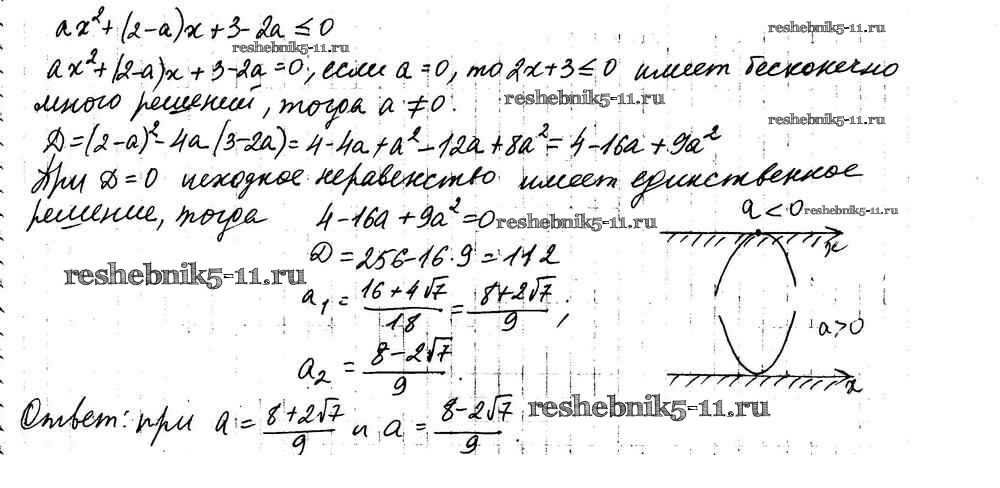 ax² + (2-a)x + 3-2a ≤ 0
reshebnik5-11.ru
reshebnik5-11.ru
ax² + (2-a)x + 3-2a = 0, если a = 0, то 2x + 3 ≤ 0 имеет бесконечно
много решений, тогда a ≠ 0.
reshebnik5-11.ru
reshebnik5-11.ru
D = (2-a)² - 4a(3-2a) = 4-4a+a² - 12a + 8a² = 4-16a + 9a²
При D = 0 исходное неравенство имеет единственное
решение, тогда 4-16a + 9a² = 0
reshebnik5-11.ru
a < 0
reshebnik5-11.ru
x
D = 256-16·9 = 112
reshebnik5-11.ru
a₁ = (16+4√7)/18 = (8+2√7)/9;
a > 0
a₂ = (8-2√7)/9.
x
Ответ: при a = (8+2√7)/9 и a = (8-2√7)/9.
reshebnik5-11.ru